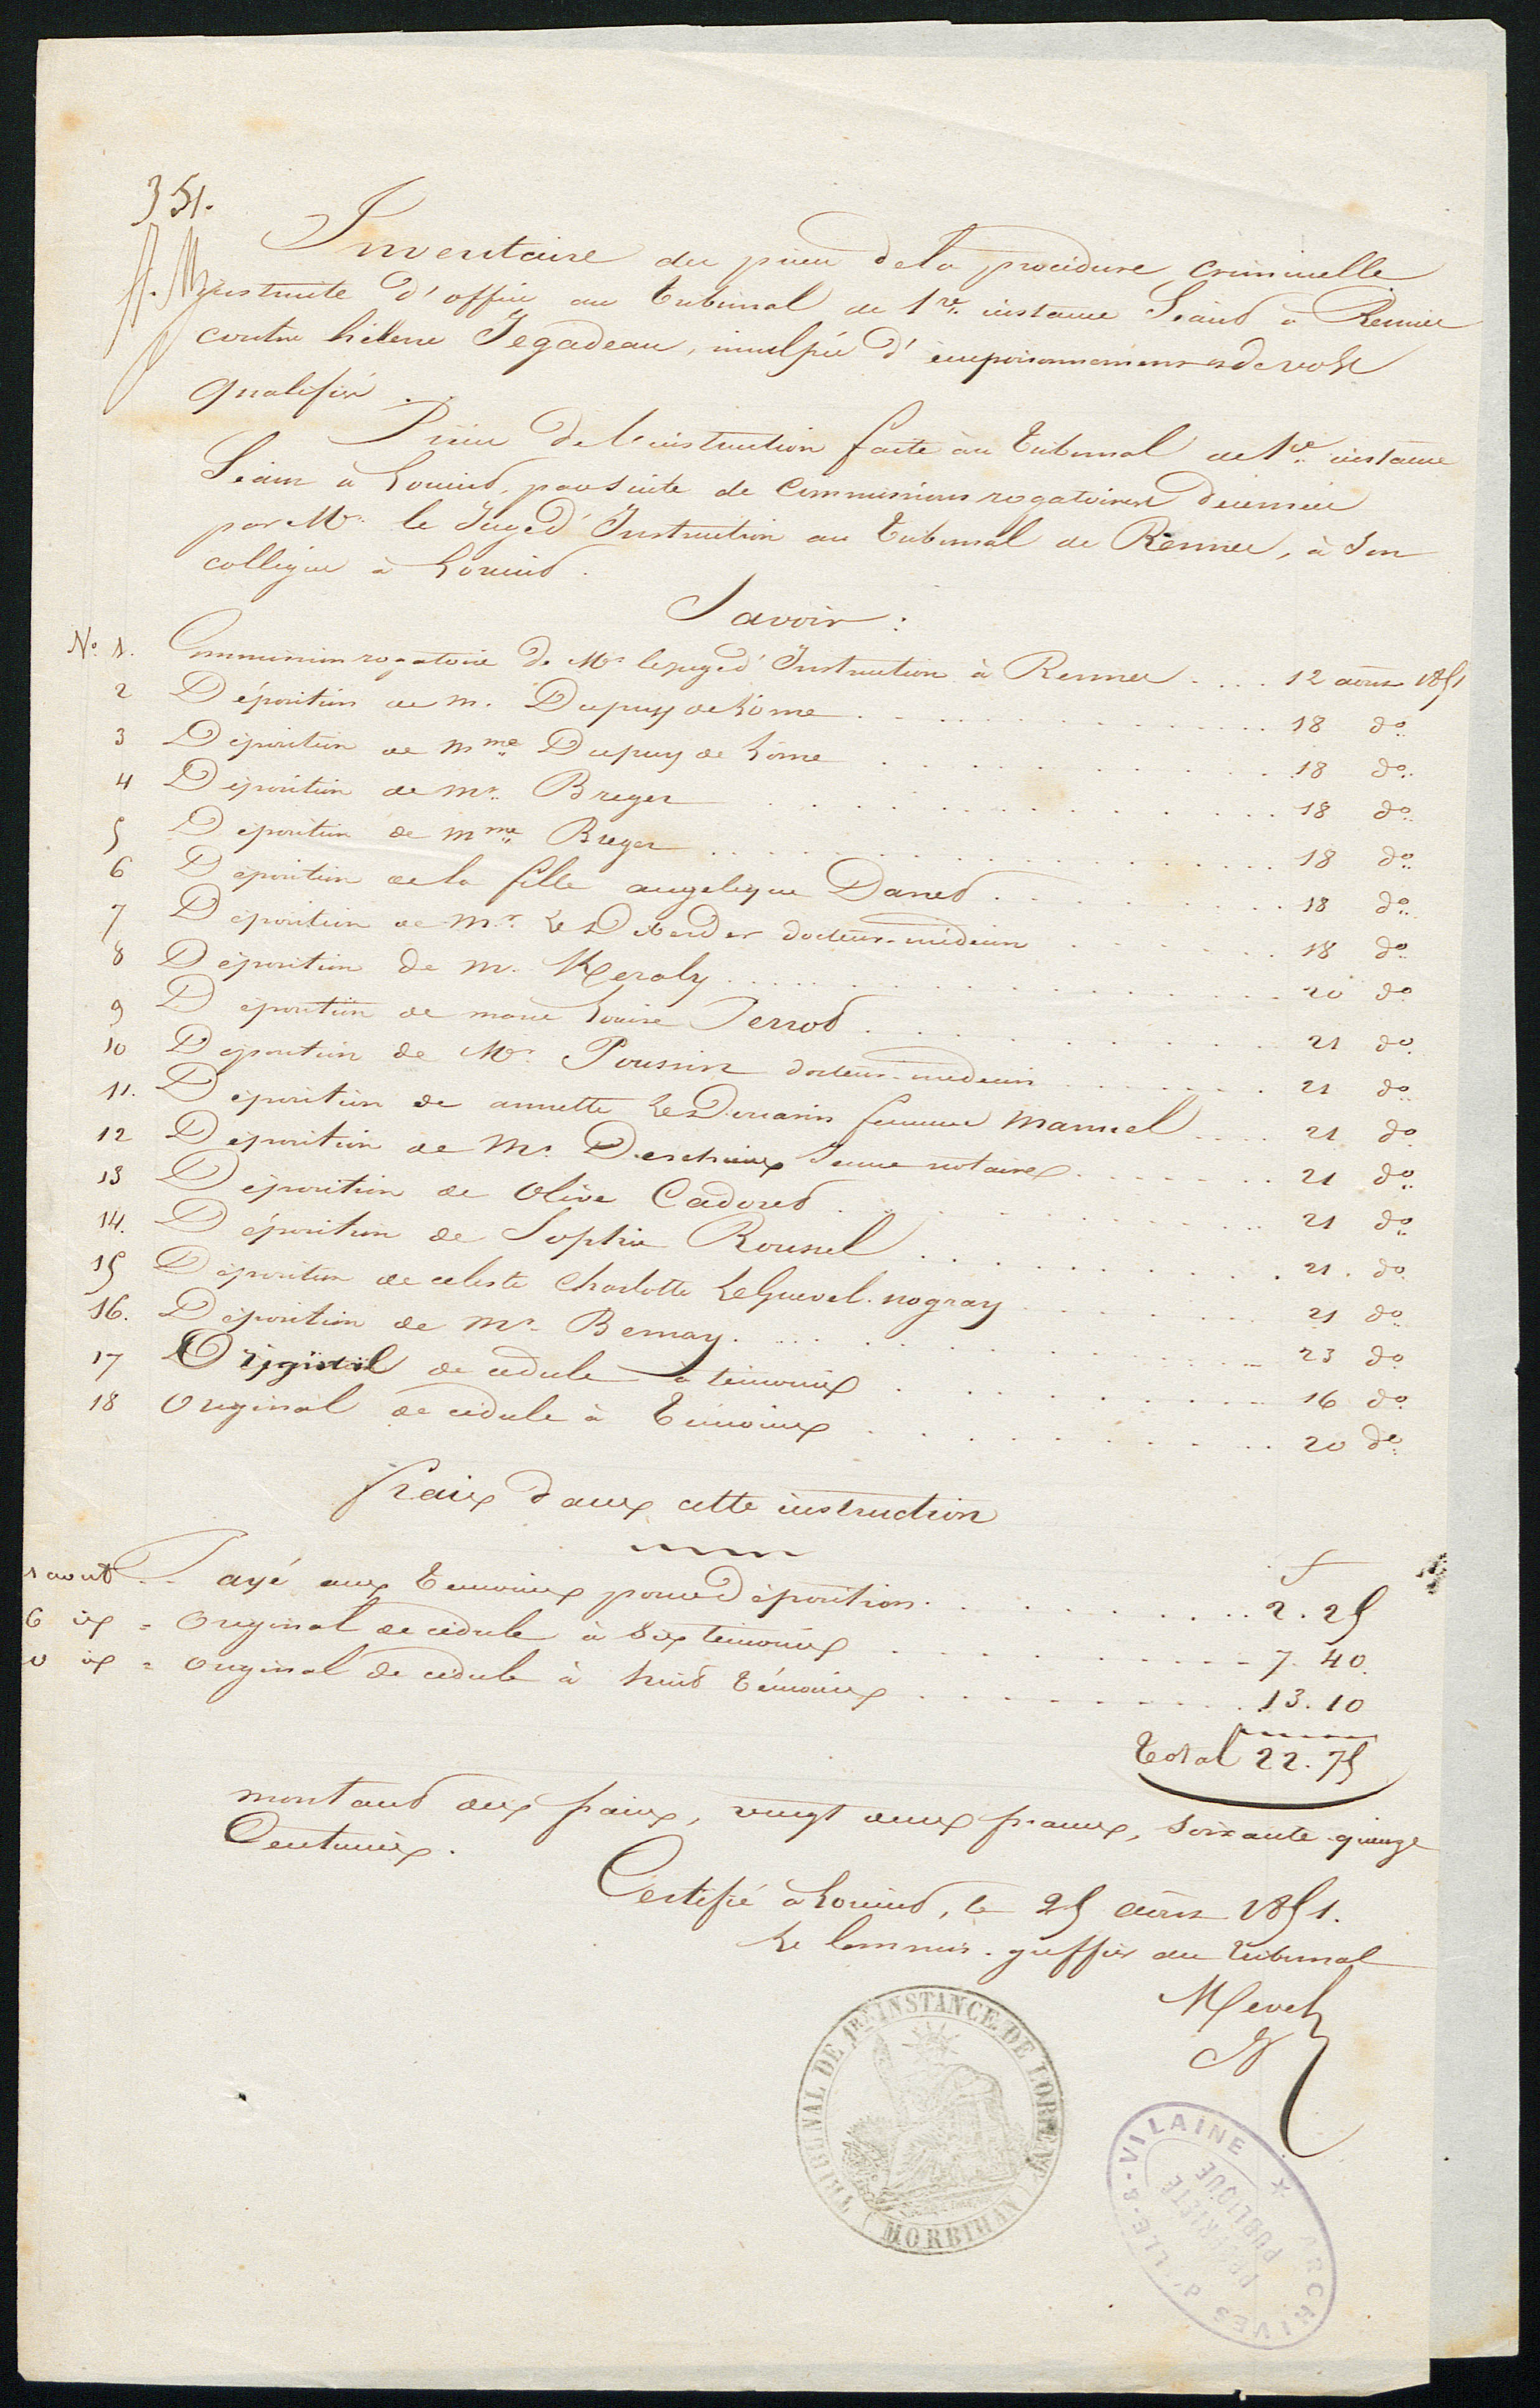 351.
Inventaire des pièces de la procédure criminelle
instruite d'office au tribunal de 1re instance Séant à Rennes
contre hélène Jegadeau, inculpée d'empoisonnement et de vols
qualifiés.
Pièces de l'instruction faite au tribunal de 1re instance
Séant à Lorient, par suite de Commissions rogatoires décernées
par Mr. le Juge d'Instruction au tribunal de Rennes, à son
collègue à Lorient.
Savoir :
No. 1. Commission rogatoire de Mr. le juge d'Instruction à Rennes .... 12 août 1851
2 Déposition de M. Dupuy de Lôme .... 18 do.
3 Déposition de Mme Dupuy de Lôme .... 18 do.
4 Déposition de Mr. Breger .... 18 do.
5 Déposition de Mme Breger .... 18 do.
6 Déposition de la fille angelique Danet .... 18 do.
7 Déposition de Mr. Le Diberder docteur-médecin .... 18 do.
8 Déposition de M. Keraly .... 20 do.
9 Déposition de marie Louise Perrot .... 21 do.
10 Déposition de Mr. Poussin docteur-médecin .... 21 do.
11. Déposition de annette Le Douarin femme Manuel .... 21 do.
12 Déposition de Mr. Deschiens Jeune notaire .... 21 do.
13 Déposition de Olive Cadoret .... 21 do.
14. Déposition de Sophie Roussel .... 21. do.
15 Déposition de celeste Charlotte Le Guevel. nogray .... 21 do.
16. Déposition de Mr. Bernay .... 23 do.
17 Original de cédule à témoins .... 16 do.
18 Original de cédule à témoins .... 20 do.
frais dans cette instruction
f
1 août .. Payé aux témoins pour déposition .... 2.25
6 id = Original de cédule à six témoins .... 7.40.
0 id = Original de cédule à huit témoins .... 13.10
Total 22.75
montant des frais, vingt deux francs, soixante quinze
Centimes.
Certifié à Lorient, le 25 août 1851.
Le Commis. greffier du tribunal
TRIBUNAL DE 1RE INSTANCE DE LORIENT (MORBIHAN)
ARCHIVES D'ILLE-&-VILAINE *
PROPRIÉTÉ
PUBLIQUE